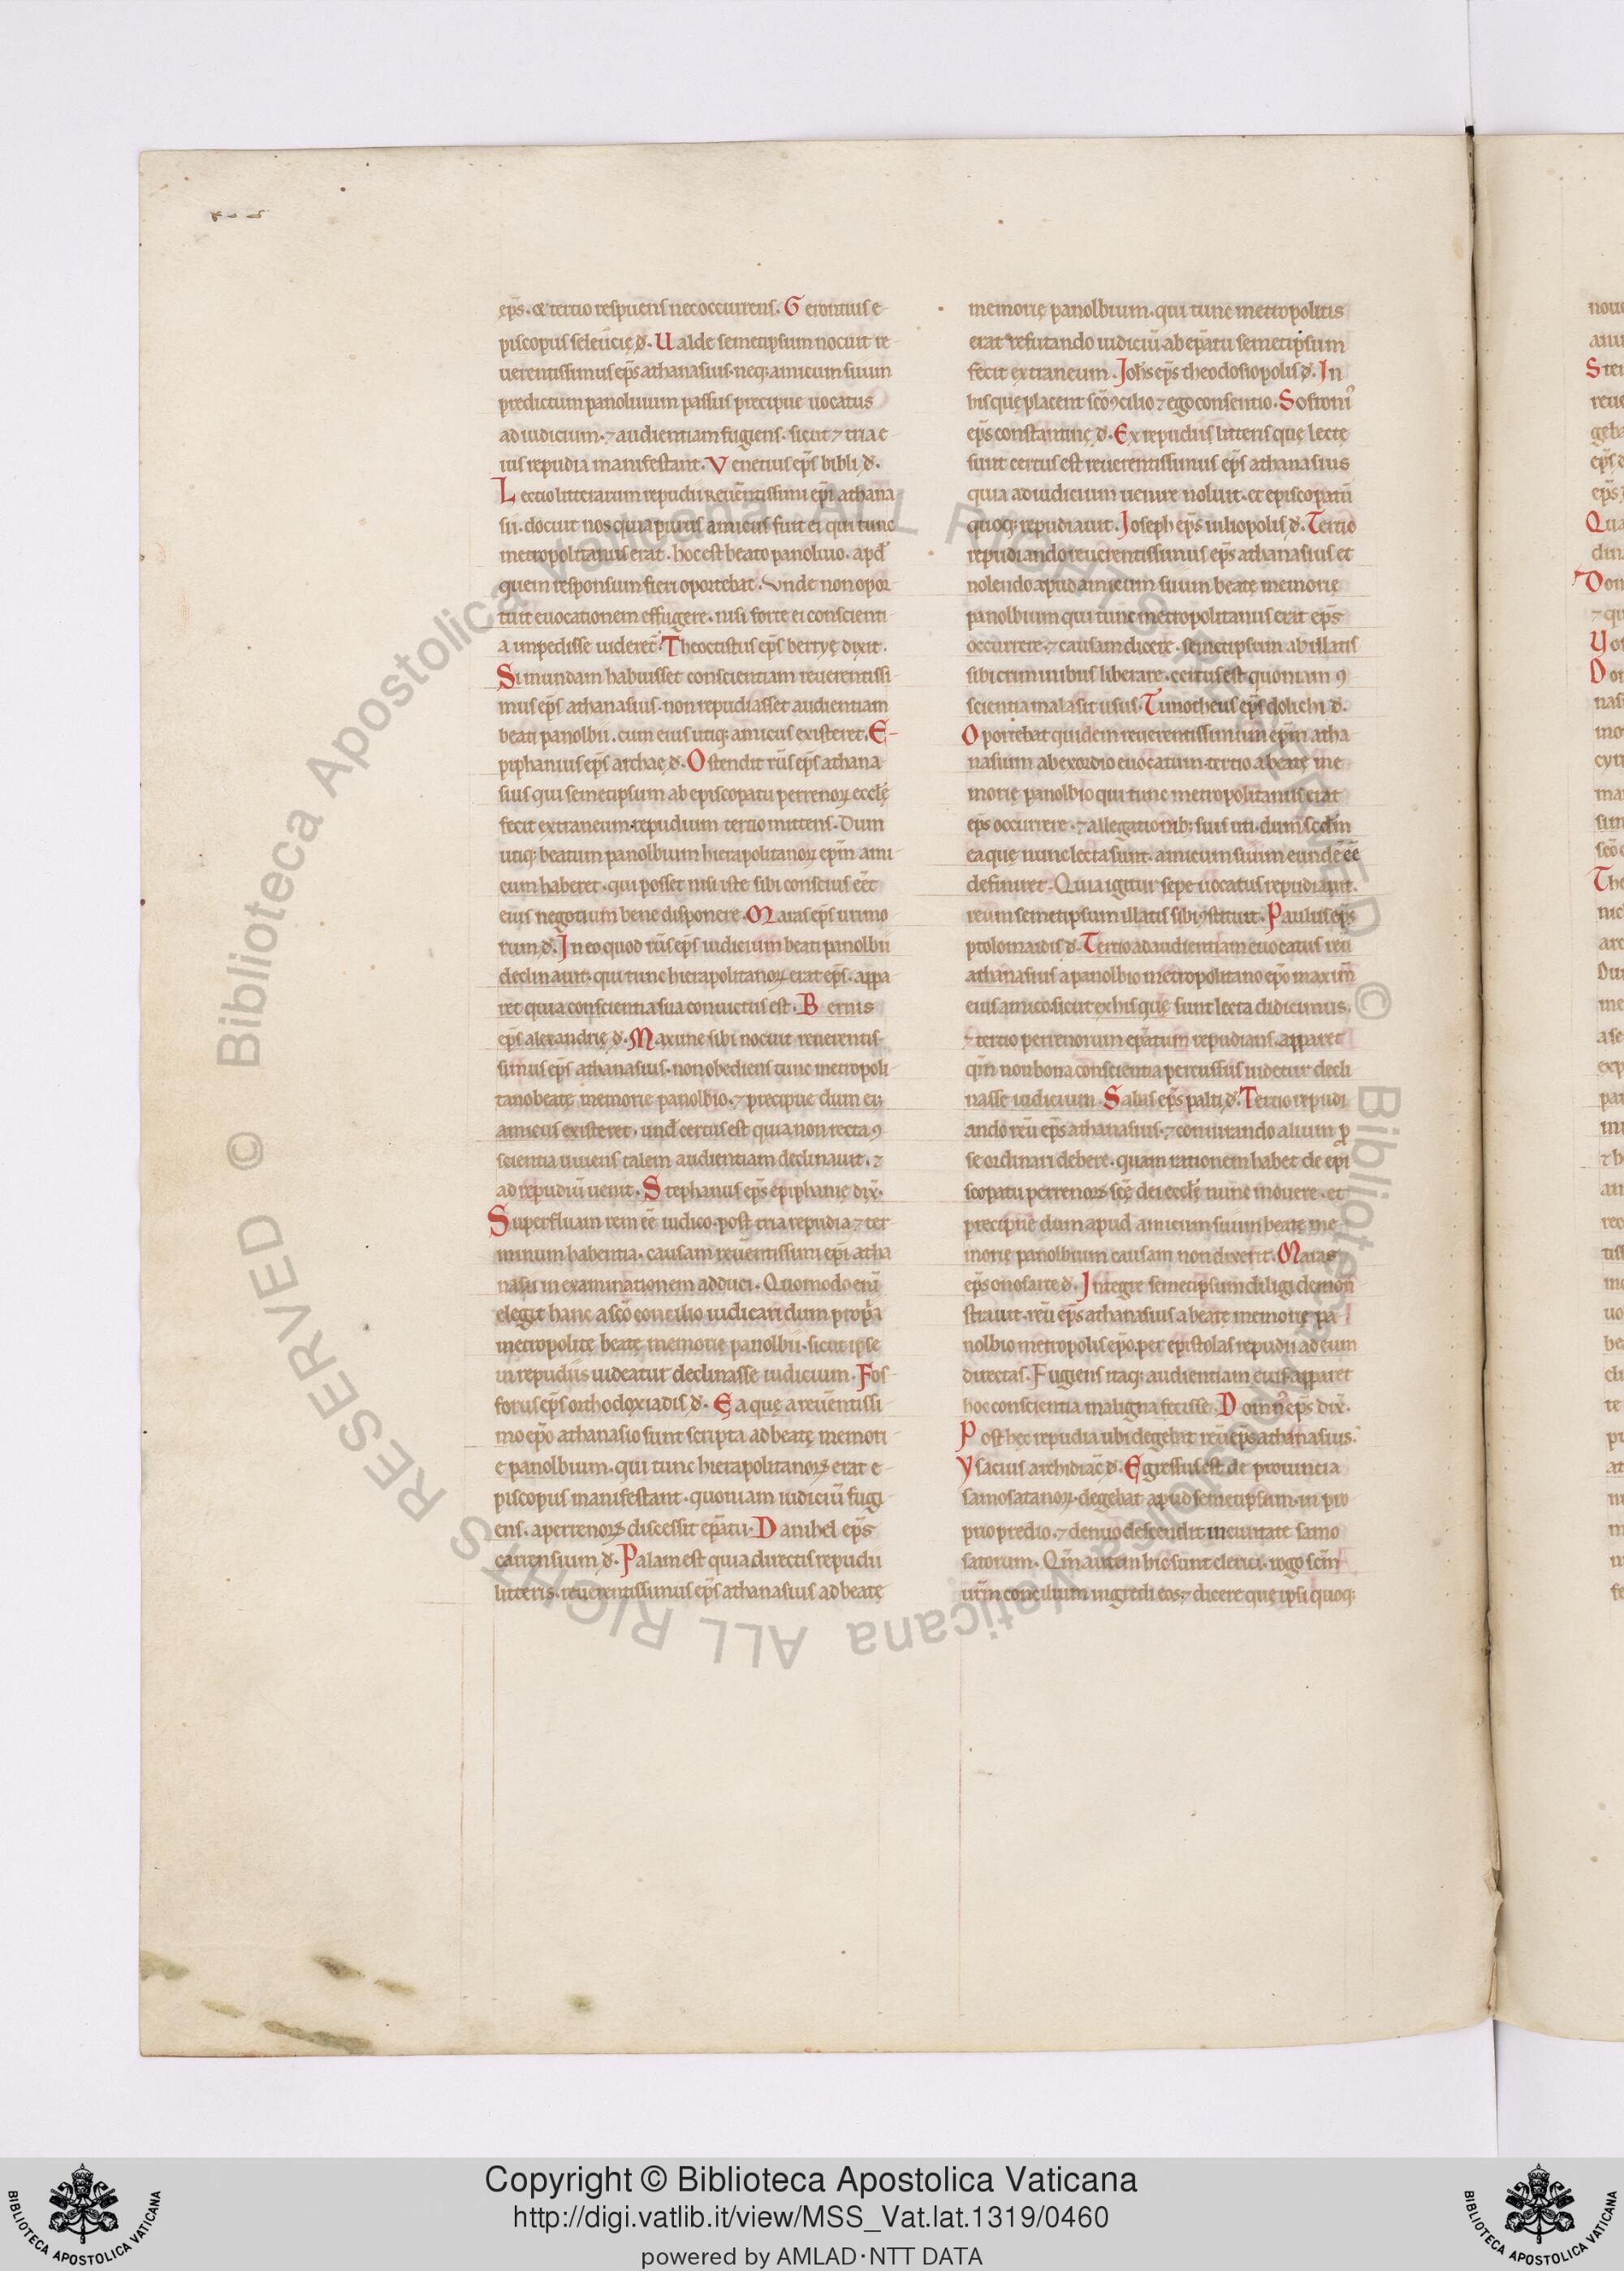 ep̄s. & tertio respuens nec occurrens. Gerontius e-
piscopus seleucię d̄. Ualde semetipsum nocuit re
uerentissimus ep̄s athanasius. neq; amicum suum
predictum panoluium passus precipue uocatus
ad iudicium. ⁊ audientiam fugiens. sicut ⁊ tria e
ius repudia manifestant. Venetius ep̄s bibli d̄.
Lectio litterarum repudii reuētissimi ep̄i athana
sii. docuit nos quia purus amicus fuit ei qui tunc
metropolitanus erat. hoc est beato panoluio. apd̄
quem responsum fieri oportebat. Vnde non opor
tuit euocationem effugere. nisi forte ei conscienti
a impedisse uideret̄. Theoctistus ep̄s berryę dixit.
Si mundam habuisset conscientiam reuerentissi
mus ep̄s athanasius. non repudiasset audientiam
beati panolbii. cum eius utiq; amicus existeret. E-
piphanius ep̄s archaę d̄. Ostendit rūs ep̄s athana
sius qui semetipsum ab episcopatu perrenoꝝ eccłę
fecit extraneum. repudium tertio mittens. Dum
utiq; beatum panolbium hierapolitanoꝝ epīm ami
cum haberet. qui posset nisi iste sibi conscius eēt
eius negotium bene disponere. Maras ep̄s urimo
rum d̄. In eo quod rūs ep̄s iudicium beati panolbii
declinauit. qui tunc hierapolitanoꝝ erat ep̄s. appa
ret quia conscientia sua conuictus est. Bernis
ep̄s alexandrię d̄. Maxime sibi nocuit reuerentis
simus ep̄s athanasius. non obediens tunc metropoli
tano beatę memorie panolbio. ⁊ precipue dum ei;
amicus existeret. und̄ certus est quia non recta ꝯ
scientia uiuens talem audientiam declinauit. ⁊
ad repudiū uenit. Stephanus ep̄s epiphanię dix̄.
Superfluam rem eē iudico. post tria repudia ⁊ ter
minum habentia. causam reuētissimi ep̄i atha
nasii in examinationem adduci. Quomodo enī
elegit hanc a sc̄o concilio iudicari dum prop̄a
metropolitę beatę memorię panolbii. sicut ipse
in repudiis uideatur declinasse iudicium. Fos
forus ep̄s orthodoxiadis d̄. Ea quę a reuētissi
mo ep̄o athanasio sunt scripta ad beatę memori
e panolbium. qui tunc hierapolitanoꝝ erat e-
piscopus manifestant. quoniam iudiciū fugi
ens. a perrenoꝝ discessit ep̄atu. Danihel ep̄s
carrensium d̄. Palam est quia directis repudii
litteris. reuerentissimus ep̄s athanasius ad beatę
memorię panolbium. qui tunc metropolitis
erat refutando iudiciū. ab ep̄atu semetipsum
fecit extraneum. Joh̄s ep̄s theodosiopolis d̄. In
his quę placent sc̄o ꝯcilio ⁊ ego consentio. Sofroni᾽
ep̄s constantinę d̄. Ex repudiis litteris quę lectę
sunt certus est reuerentissimus ep̄s athanasius
quia ad iudicium uenire noluit. et episcopatū
quoq; repudiauit. Joseph ep̄s iuliopolis d̄. Tertio
repudiando reuerentissimus ep̄s athanasius et
nolendo apud amicum suum beatę memorię
panolbium qui tunc metropolitanus erat ep̄s
occurrere. ⁊ causam dicere. semetipsum ab illatis
sibi criminibus liberare. certus est quoniam ꝯ
scientia mala sit usus. Timotheus ep̄s dolichi d̄.
Oportebat quidem reuerentissimum ep̄m atha
nasium ab exordio euocatum. tertio a beatę me
morię panolbio qui tunc metropolitanus erat
ep̄s occurrere. ⁊ allegationib; suis uti. dum scdm̄
ea que nunc lecta sunt. amicum suum eundē eē
definiret. Quia igitur sepe uocatus repudiauit.
reum semetipsum illatis sibi ꝯstituit. Paulus ep̄s
ptolomaidis d̄. Tertio ad audientiam euocatus reū
athanasius a panolbio metropolitano ep̄o maxim̄
eius amico. sicut ex his quę sunt lecta didicimus.
⁊ tertio perrenorum ep̄atum repudians. apparet
qm̄ non bona conscientia percussus uidetur decli
nasse iudicium. Sabas ep̄s palti d̄. Tertio repudi
ando reū ep̄s athanasius. ⁊ coniurando alium p̄
se ordinari debere. quam rationem habet de epi
scopatu perrenoꝝ scę̄ dei eccłę nunc mouere. et
precipue dum apud amicum suum beatę me
morię panolbium causam non dixerit. Maras
ep̄s onosarte d̄. Integre semetipsum diligi demon
strauit. reū ep̄s athanasius a beatę memorię pa
nolbio metropolis ep̄o. per epistolas repudii ad eum
directas. Fugiens itaq; audientiam eius apparet
hoc conscientia maligna fecisse. Domn᾽ ep̄s dix̄.
Post hęc repudia ubi degebat reū ep̄s athanasius.
Ysacius archidiac̄ d̄. Egressus est de prouincia
samosatanoꝝ. degebat apud semetipsum. in pro
prio predio. ⁊ denuo descendit in ciuitate samo
satorum. Qm̄ autem hic sunt clerici. rogo scm̄
ur̄m concilium ingredi eos. ⁊ dicere quę ipsi quoq;
© Biblioteca Apostolica Vaticana ALL RIGHTS RESERVED
© Biblioteca Apostolica Vaticana ALL RIGHTS RESERVED
Copyright © Biblioteca Apostolica Vaticana
http://digi.vatlib.it/view/MSS_Vat.lat.1319/0460
powered by AMLAD·NTT DATA
BIBLIOTECA APOSTOLICA VATICANA
BIBLIOTECA APOSTOLICA VATICANA